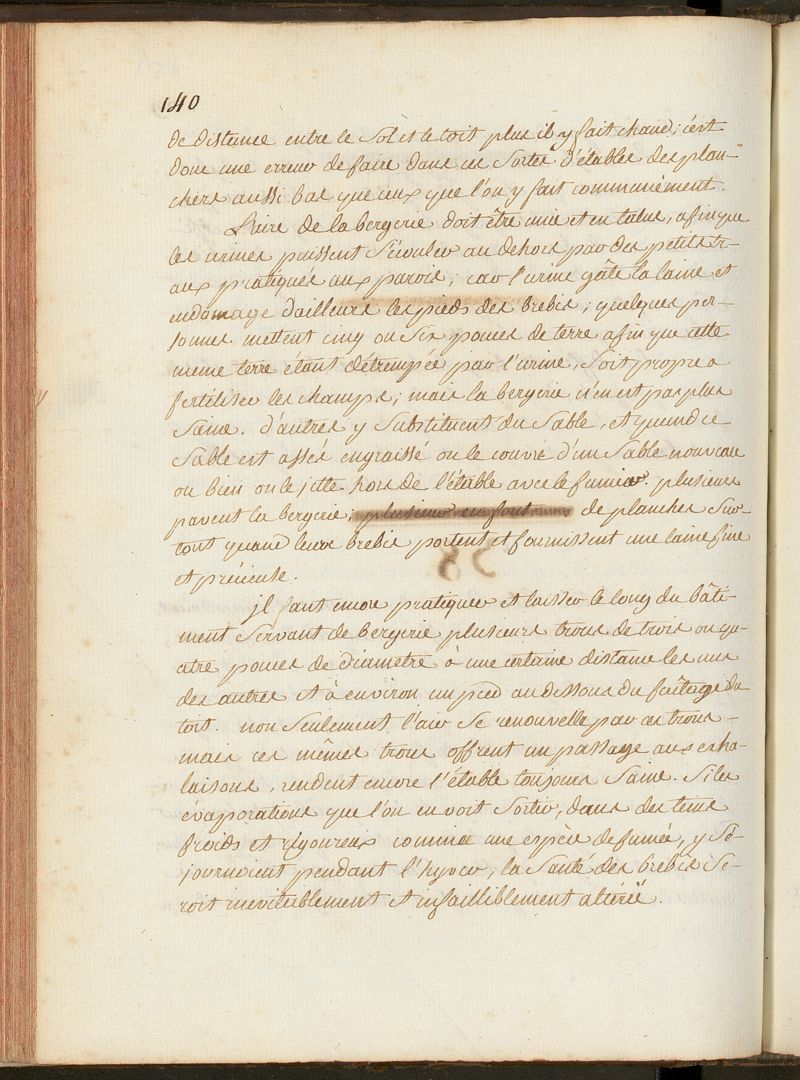 140
de distance entre le Sol et le toit plus il y fait chaud; c'est
donc une erreur de faire dans ces Sortes d'étables des plan-
chers aussi bas que ceux que l'on y fait communément.
L'aire de la bergerie doit être unie et en talus, afin que
les urines puissent S'écouler au dehors par des petits tr-
aux pratiqués aux parois; car l'urine gâte la laine et
endomage d'ailleurs les pieds des brebis; quelques per-
sonnes mettent cinq ou Six pouces de terre afin que cette
meme terre étant détrempée par l'urine, Soit propre a
fertiliser les champs; mais la bergerie n'en est pas plus
Saine. d'autres y Substituent du Sable, et quand ce
Sable est assés engraissé on le couvre d'un Sable nouveau
ou bien on le jette hors de l'étable avec le fumier. plusieurs
pavent la bergerie; plusieurs en font de planches Sur
tout quand leurs brebis portent et fournissent une laine fine
et précieuse.
jl faut encore pratiquer et laisser le long du bâti-
ment Servant de bergerie plusieurs trous de trois ou qu-
atre pouces de diametre à une certaine distance les uns
des autres et à environ un pied au dessous du faîtage du
toit. non Seulement l'air Se renouvelle par ces trous -
mais ces mêmes trous offrent un passage aux exha-
laisons, rendent encore l'étable toujours Saine. Si les
évaporations que l'on en voit Sortir, dans des tems
froids et rigoureux comme une espèce de fumée, y Sé-
journoient pendant l'hyver, la Santé des brebis Se-
roit inévitablement et infailliblement altérée.